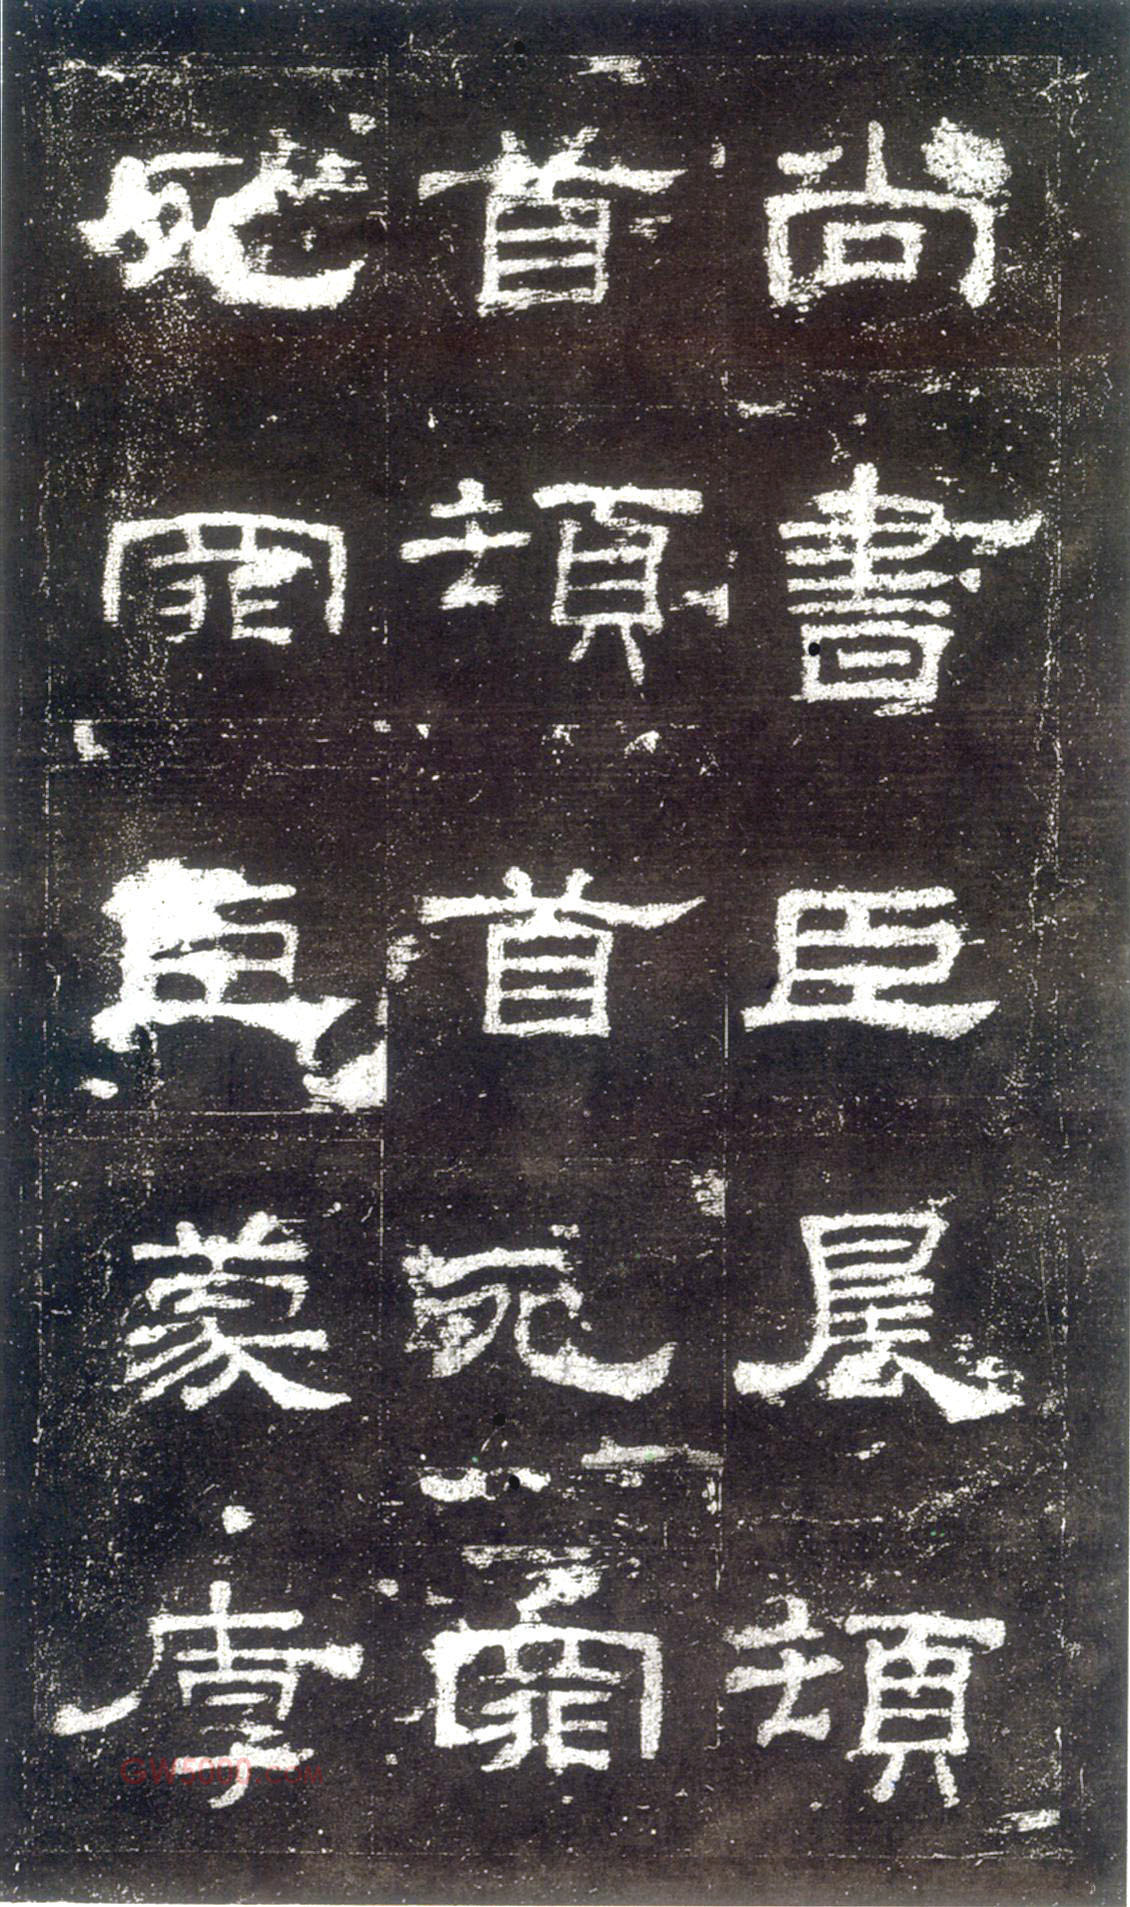 尚書臣晨頓
首頓首死罪
死罪臣蒙厚
GW5000.COM